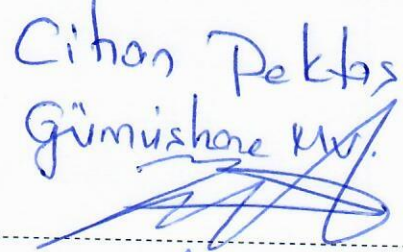 Cihan Pektaş
Gümüşhane Mv.